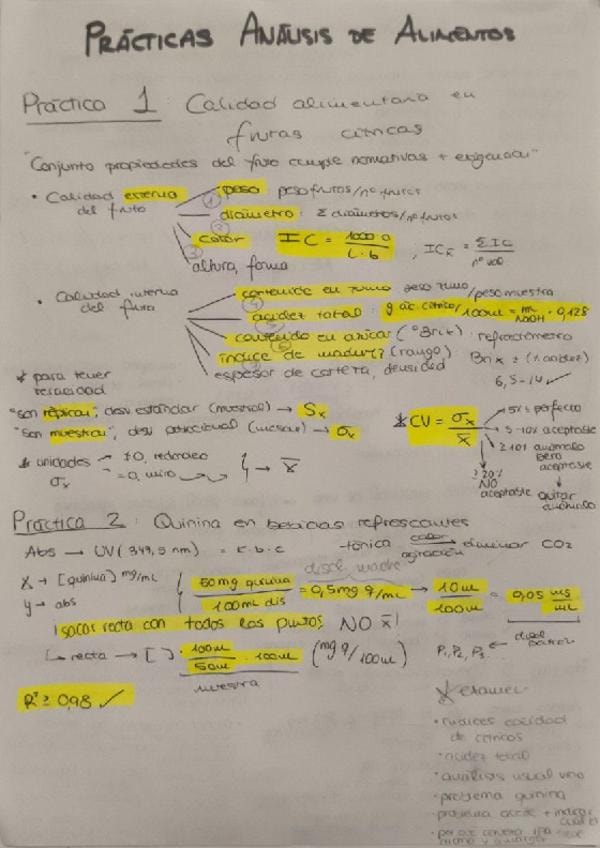 PRÁCTICAS ANÁLISIS DE ALIMENTOS
Práctica 1: Calidad alimentaria en
frutas cítricas
"Conjunto propiedades del fruto cumple normativas + exigencias"
• Calidad externa del fruto
① peso: peso frutos/nº frutos
diámetro: Σ diámetros/nº frutos
② color IC = 1000·a / L·b , IC x̄ = Σ IC / nº val
③ altura, forma
• Calidad interna del fruto
contenido en zumo peso zumo/peso muestra
④ acidez total: g ác. cítrico/100mL = m NaOH · 0,128
⑤ contenido en azúcar (ºBrix) refractómetro
⑥ índice de madurez (rango) Brix = (% acidez)
espesor de corteza, densidad 6,5-14 ✓
* para tener
"son réplicas", desv estándar (muestral) → Sx
"son muestras", desv poblacional → σx
* CV = σx / x̄
→ 5% ± perfecto
→ 5-10% aceptable
≥ 10% anómalo pero aceptable → quitar anómalo
≥ 20% NO aceptable
* unidades → ≠0, redondeo
σx → =0, miro → x̄
Práctica 2: Quinina en bebidas refrescantes
Abs → UV (349,5 nm) = ε·b·c -tónica calor agitación → eliminar CO2
disol. madre
X → [quinina] mg/mL
y → abs
50mg quinina / 100mL dis = 0,5mg q/mL → 10mL / 100mL = 0,05 mg / mL
¡sacar recta con todos los puntos, NO x̄!
↳ recta → [ ] · 100mL / 50mL · 100mL (mg q/100mL) P1, P2, P3... ← disol patrón
muestra
R² ≥ 0,98 ✓
* examen:
• índices calidad de cítricos
• acidez total
• análisis usual vino
• problema quinina
• problema aceite +